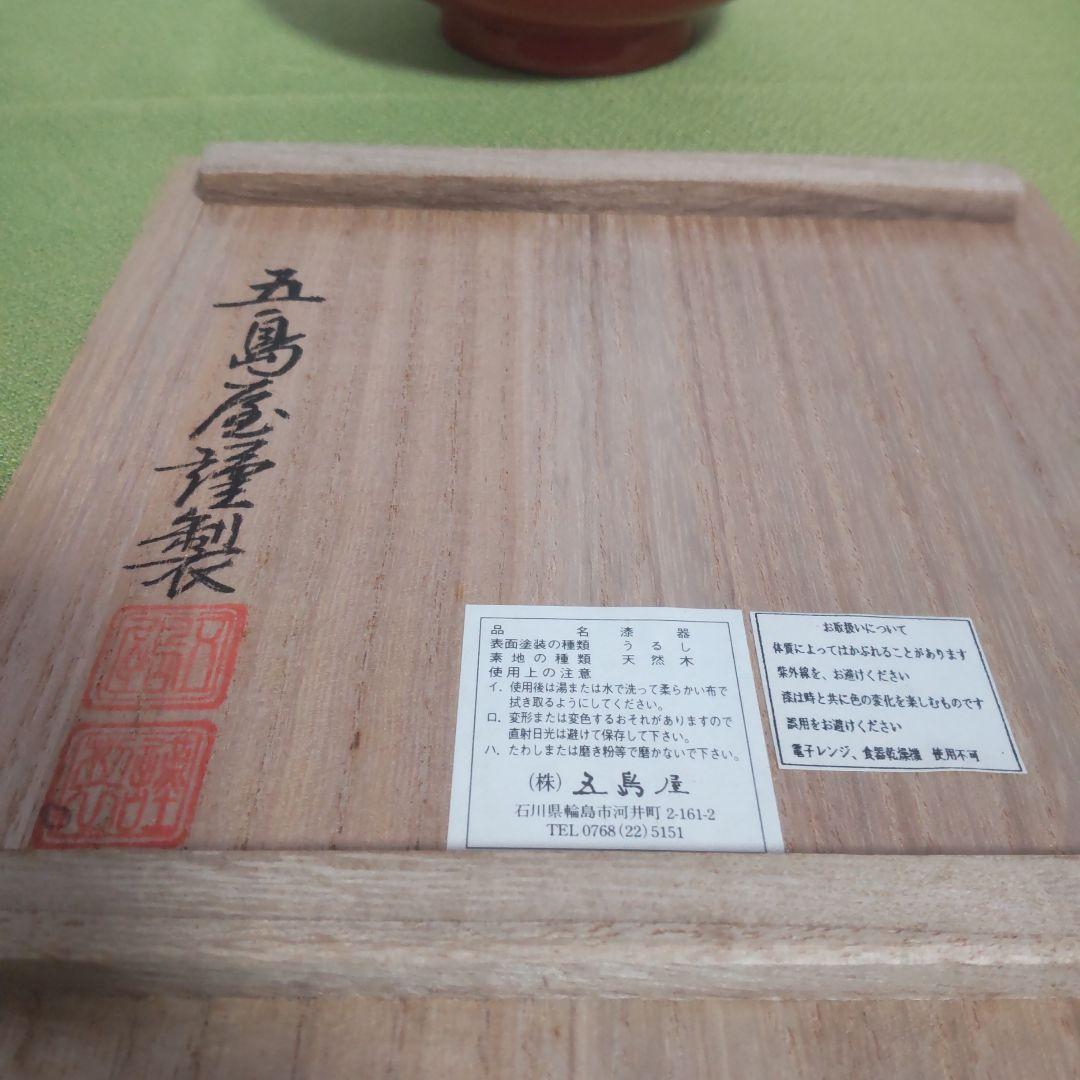 五島屋謹製
品名 漆器
表面塗装の種類 うるし
素地の種類 天然木
使用上の注意
イ．使用後は湯または水で洗って柔らかい布で
拭き取るようにしてください。
ロ．変形または変色するおそれがありますので
直射日光は避けて保存して下さい。
ハ．たわしまたは磨き粉等で磨かないで下さい。
(株) 五島屋
石川県輪島市河井町 2-161-2
TEL 0768 (22) 5151
お取扱いについて
体質によってはかぶれることがあります
紫外線を、お避けください
漆は時と共に色の変化を楽しむものです
誤用をお避けください
電子レンジ、食器乾燥機 使用不可